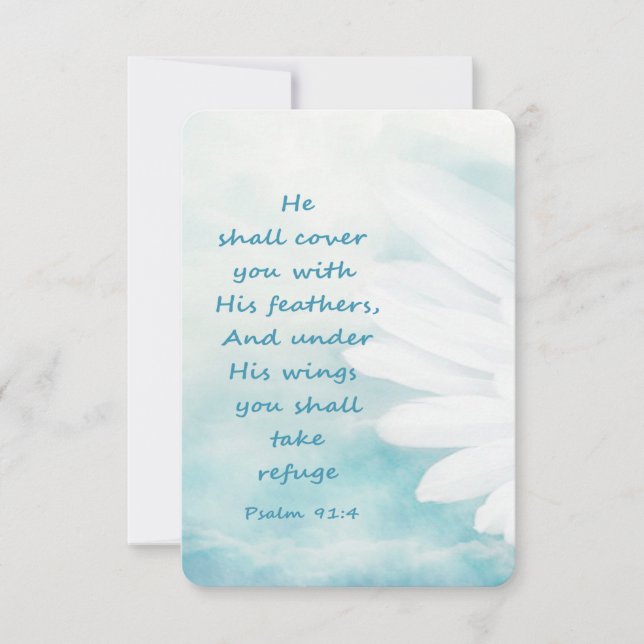 He
shall cover
you with
His feathers,
And under
His wings
you shall
take
refuge
Psalm 91:4